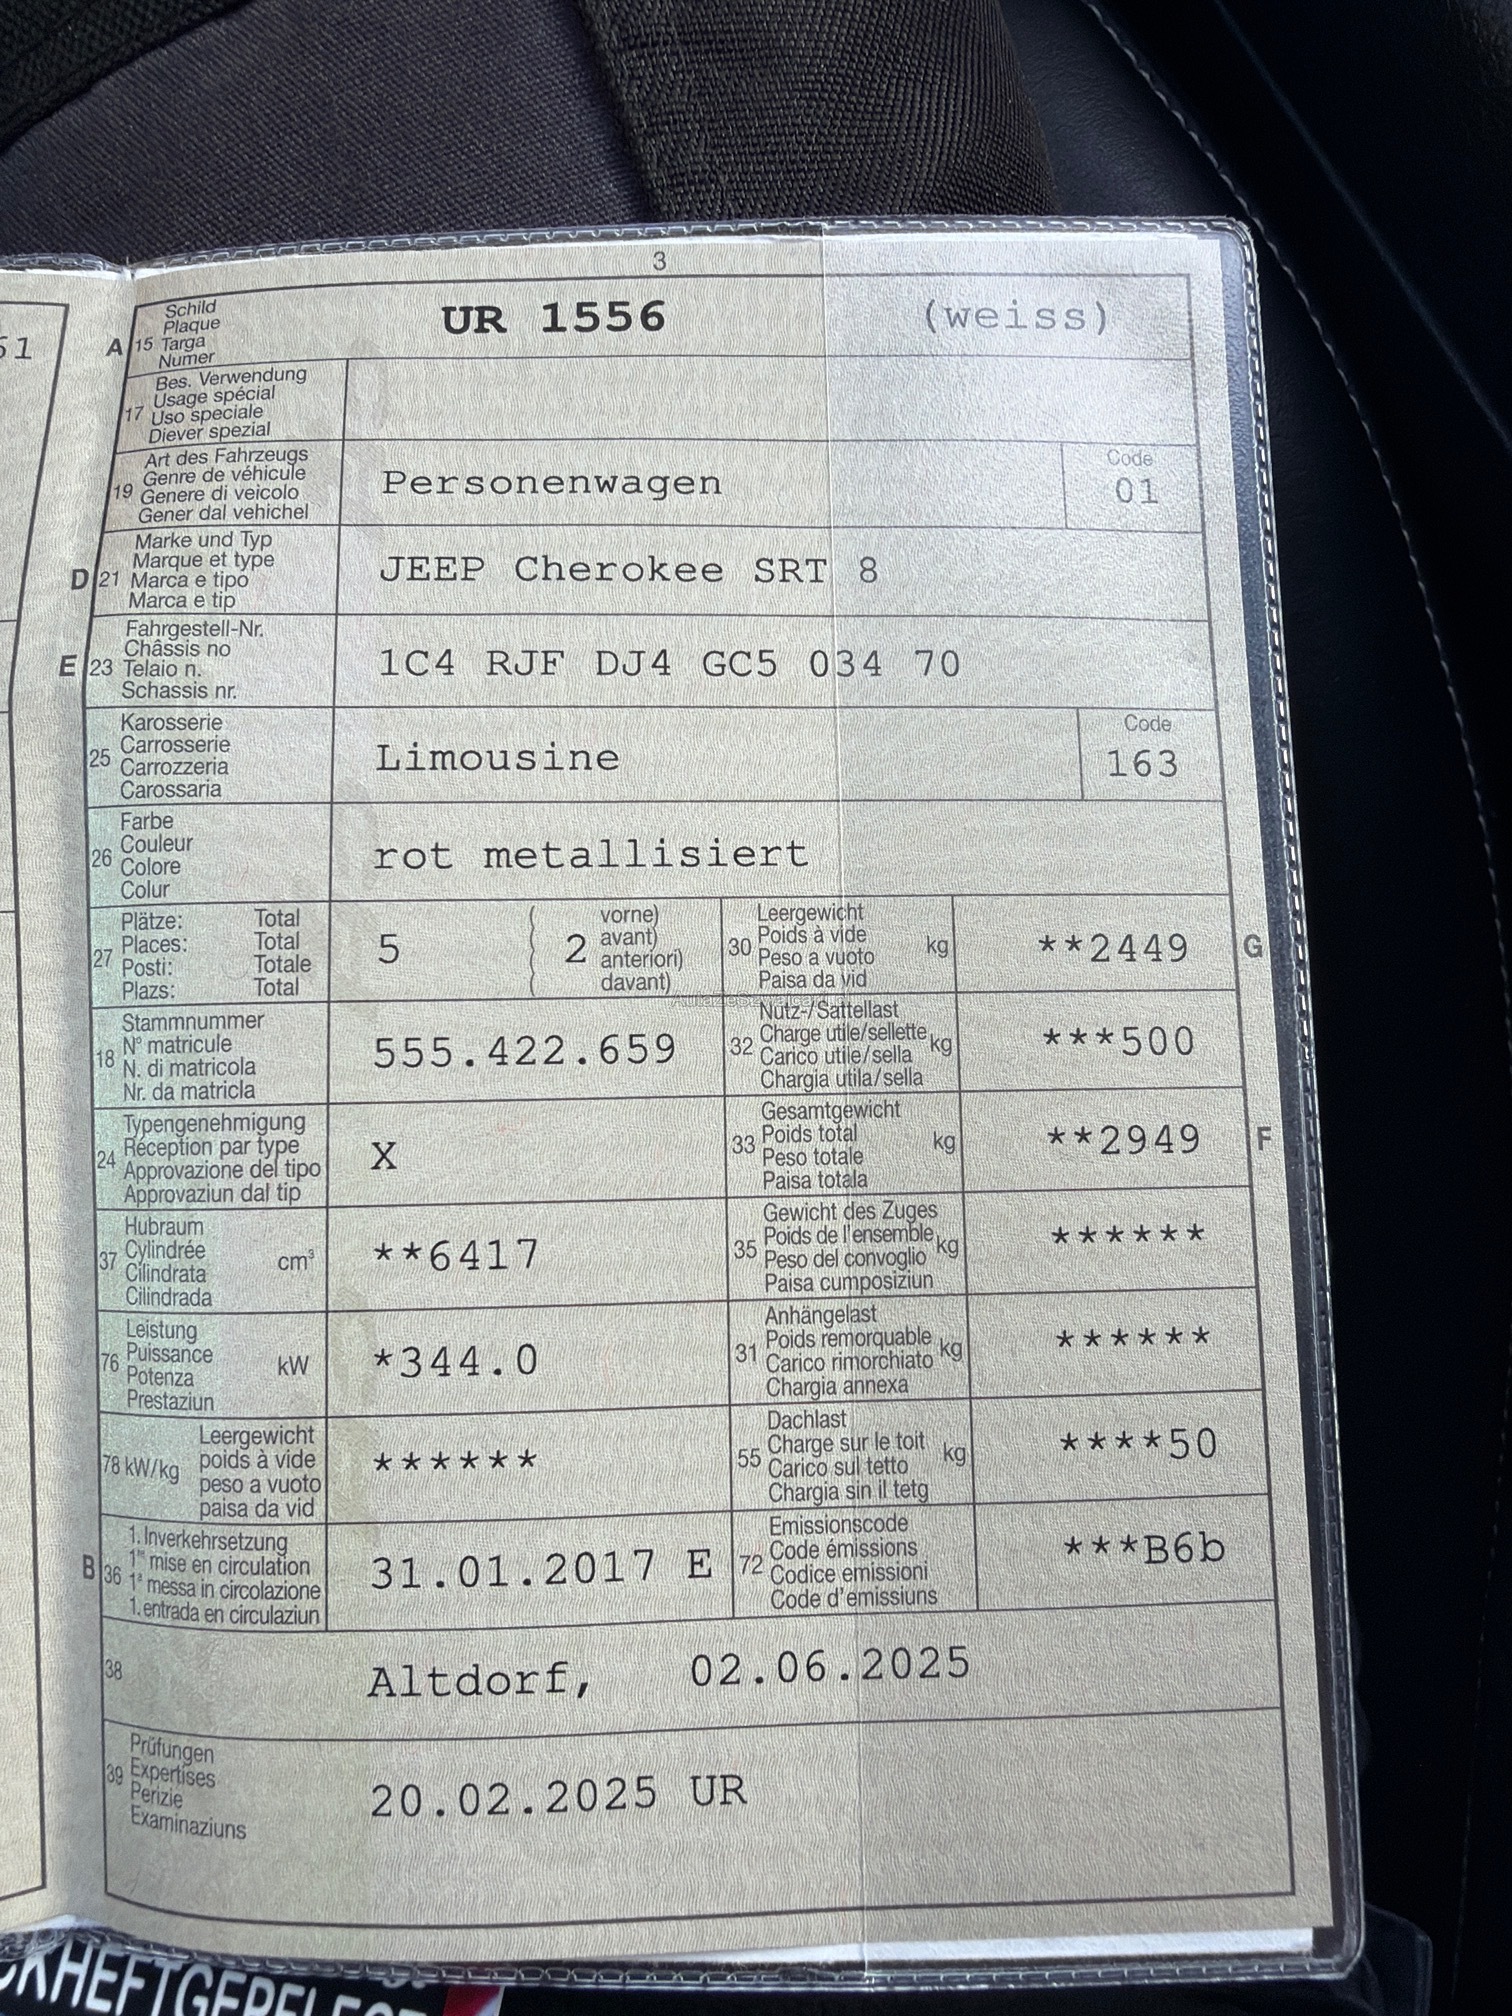 3
51
A 15 Schild
Plaque
Targa
Numer
UR 1556 (weiss)
17 Bes. Verwendung
Usage spécial
Uso speciale
Diever spezial
19 Art des Fahrzeugs
Genre de véhicule
Genere di veicolo
Gener dal vehichel
Personenwagen
Code
01
D 21 Marke und Typ
Marque et type
Marca e tipo
Marca e tip
JEEP Cherokee SRT 8
E 23 Fahrgestell-Nr.
Châssis no
Telaio n.
Schassis nr.
1C4 RJF DJ4 GC5 034 70
25 Karosserie
Carrosserie
Carrozzeria
Carossaria
Limousine
Code
163
26 Farbe
Couleur
Colore
Colur
rot metallisiert
27 Plätze: Total
Places: Total
Posti: Totale
Plazs: Total
5 ( 2 vorne)
avant)
anteriori)
davant)
30 Leergewicht
Poids à vide kg
Peso a vuoto
Paisa da vid
**2449 G
18 Stammnummer
N° matricule
N. di matricola
Nr. da matricla
555.422.659
32 Nutz-/Sattellast
Charge utile/sellette kg
Carico utile/sella
Chargia utila/sella
***500
24 Typengenehmigung
Réception par type
Approvazione del tipo
Approvaziun dal tip
X
33 Gesamtgewicht
Poids total kg
Peso totale
Paisa totala
**2949 F
37 Hubraum
Cylindrée cm³
Cilindrata
Cilindrada
**6417
35 Gewicht des Zuges
Poids de l'ensemble kg
Peso del convoglio
Paisa cumposiziun
******
76 Leistung
Puissance kW
Potenza
Prestaziun
*344.0
31 Anhängelast
Poids remorquable kg
Carico rimorchiato
Chargia annexa
******
78 kW/kg Leergewicht
poids à vide
peso a vuoto
paisa da vid
******
55 Dachlast
Charge sur le toit kg
Carico sul tetto
Chargia sin il tetg
****50
B 36 1. Inverkehrsetzung
1re mise en circulation
1a messa in circolazione
1. entrada en circulaziun
31.01.2017 E
72 Emissionscode
Code émissions
Codice emissioni
Code d'emissiuns
***B6b
38 Altdorf, 02.06.2025
39 Prüfungen
Expertises
Perizie
Examinaziuns
20.02.2025 UR